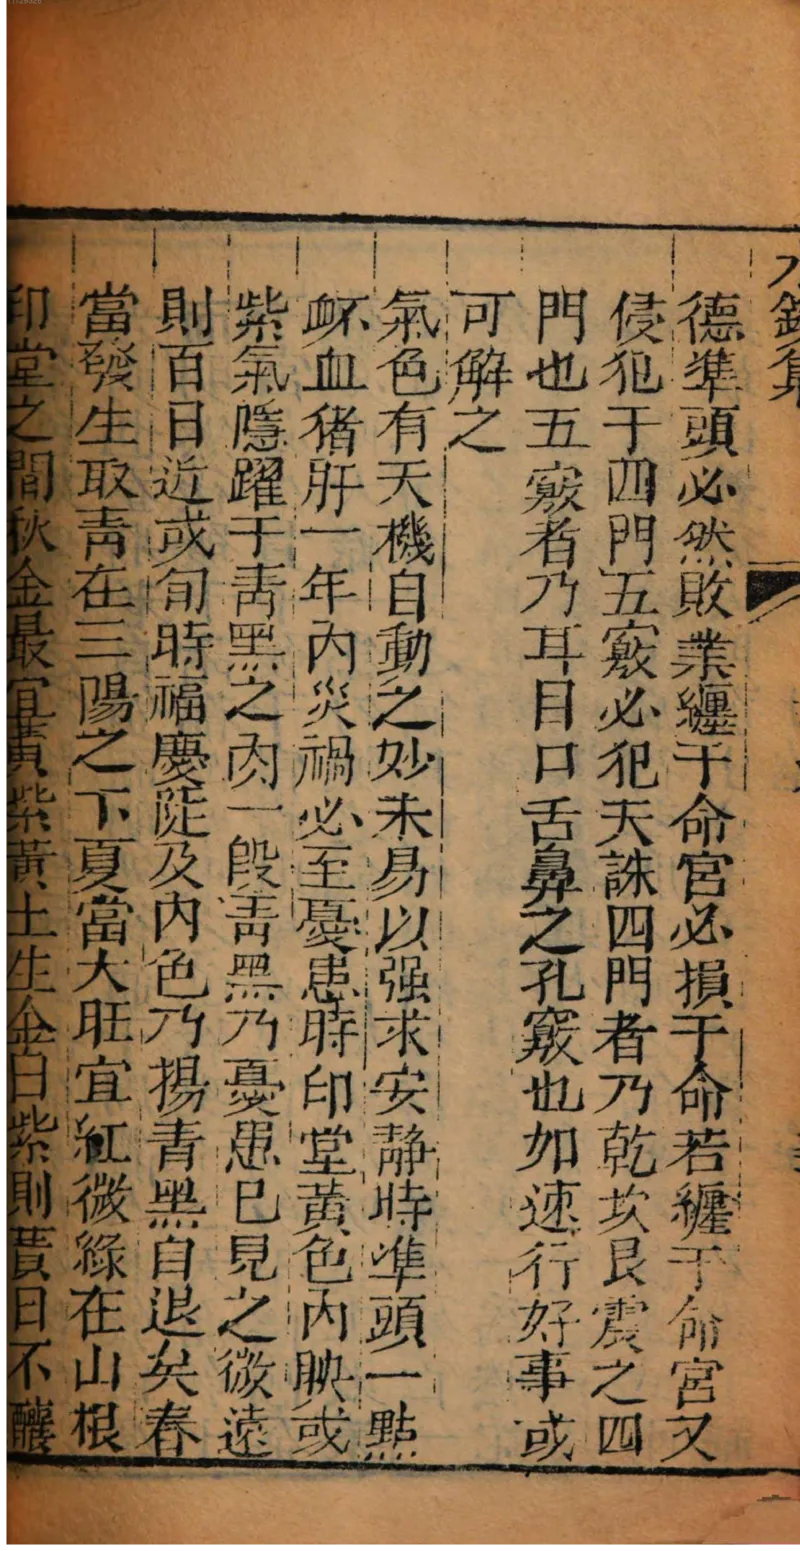 水鏡集
德準頭必然敗業纏于命宮必損于命若纏于命宮又
侵犯于四門五竅必犯天誅四門者乃乾坎艮震之四
門也五竅者乃耳目口舌鼻之孔竅也如速行好事或
可解之
氣色有天機自動之妙未易以强求安静時準頭一點
衃血猪肝一年內災禍必至憂患時印堂黃色內映或
紫氣隱躍于靑黑之內一段靑黑乃憂患已見之微遠
則百日近或旬時福慶陡及內色乃揚青黑自退矣春
當發生取靑在三陽之下夏當大旺宜紅微綠在山根
印堂之間秋金最宜黃紫黃土生金白紫則貫日不釀